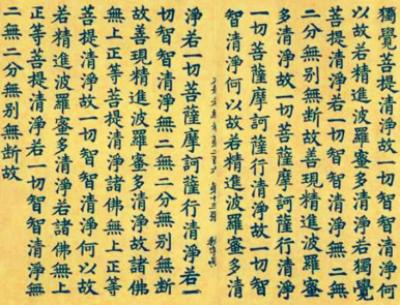 獨覺菩提清淨故一切智智清淨何
以故若精進波羅蜜多清淨若獨覺
菩提清淨若一切智智清淨無二無
二分無別無斷故善現精進波羅蜜
多清淨故一切菩薩摩訶薩行清淨
一切菩薩摩訶薩行清淨故一切智
智清淨何以故若精進波羅蜜多清
淨若一切菩薩摩訶薩行清淨若一
切智智清淨無二無二分無別無斷
故善現精進波羅蜜多清淨故諸佛
無上正等菩提清淨諸佛無上正等
菩提清淨故一切智智清淨何以故
若精進波羅蜜多清淨若諸佛無上
正等菩提清淨若一切智智清淨無
二無二分無別無斷故